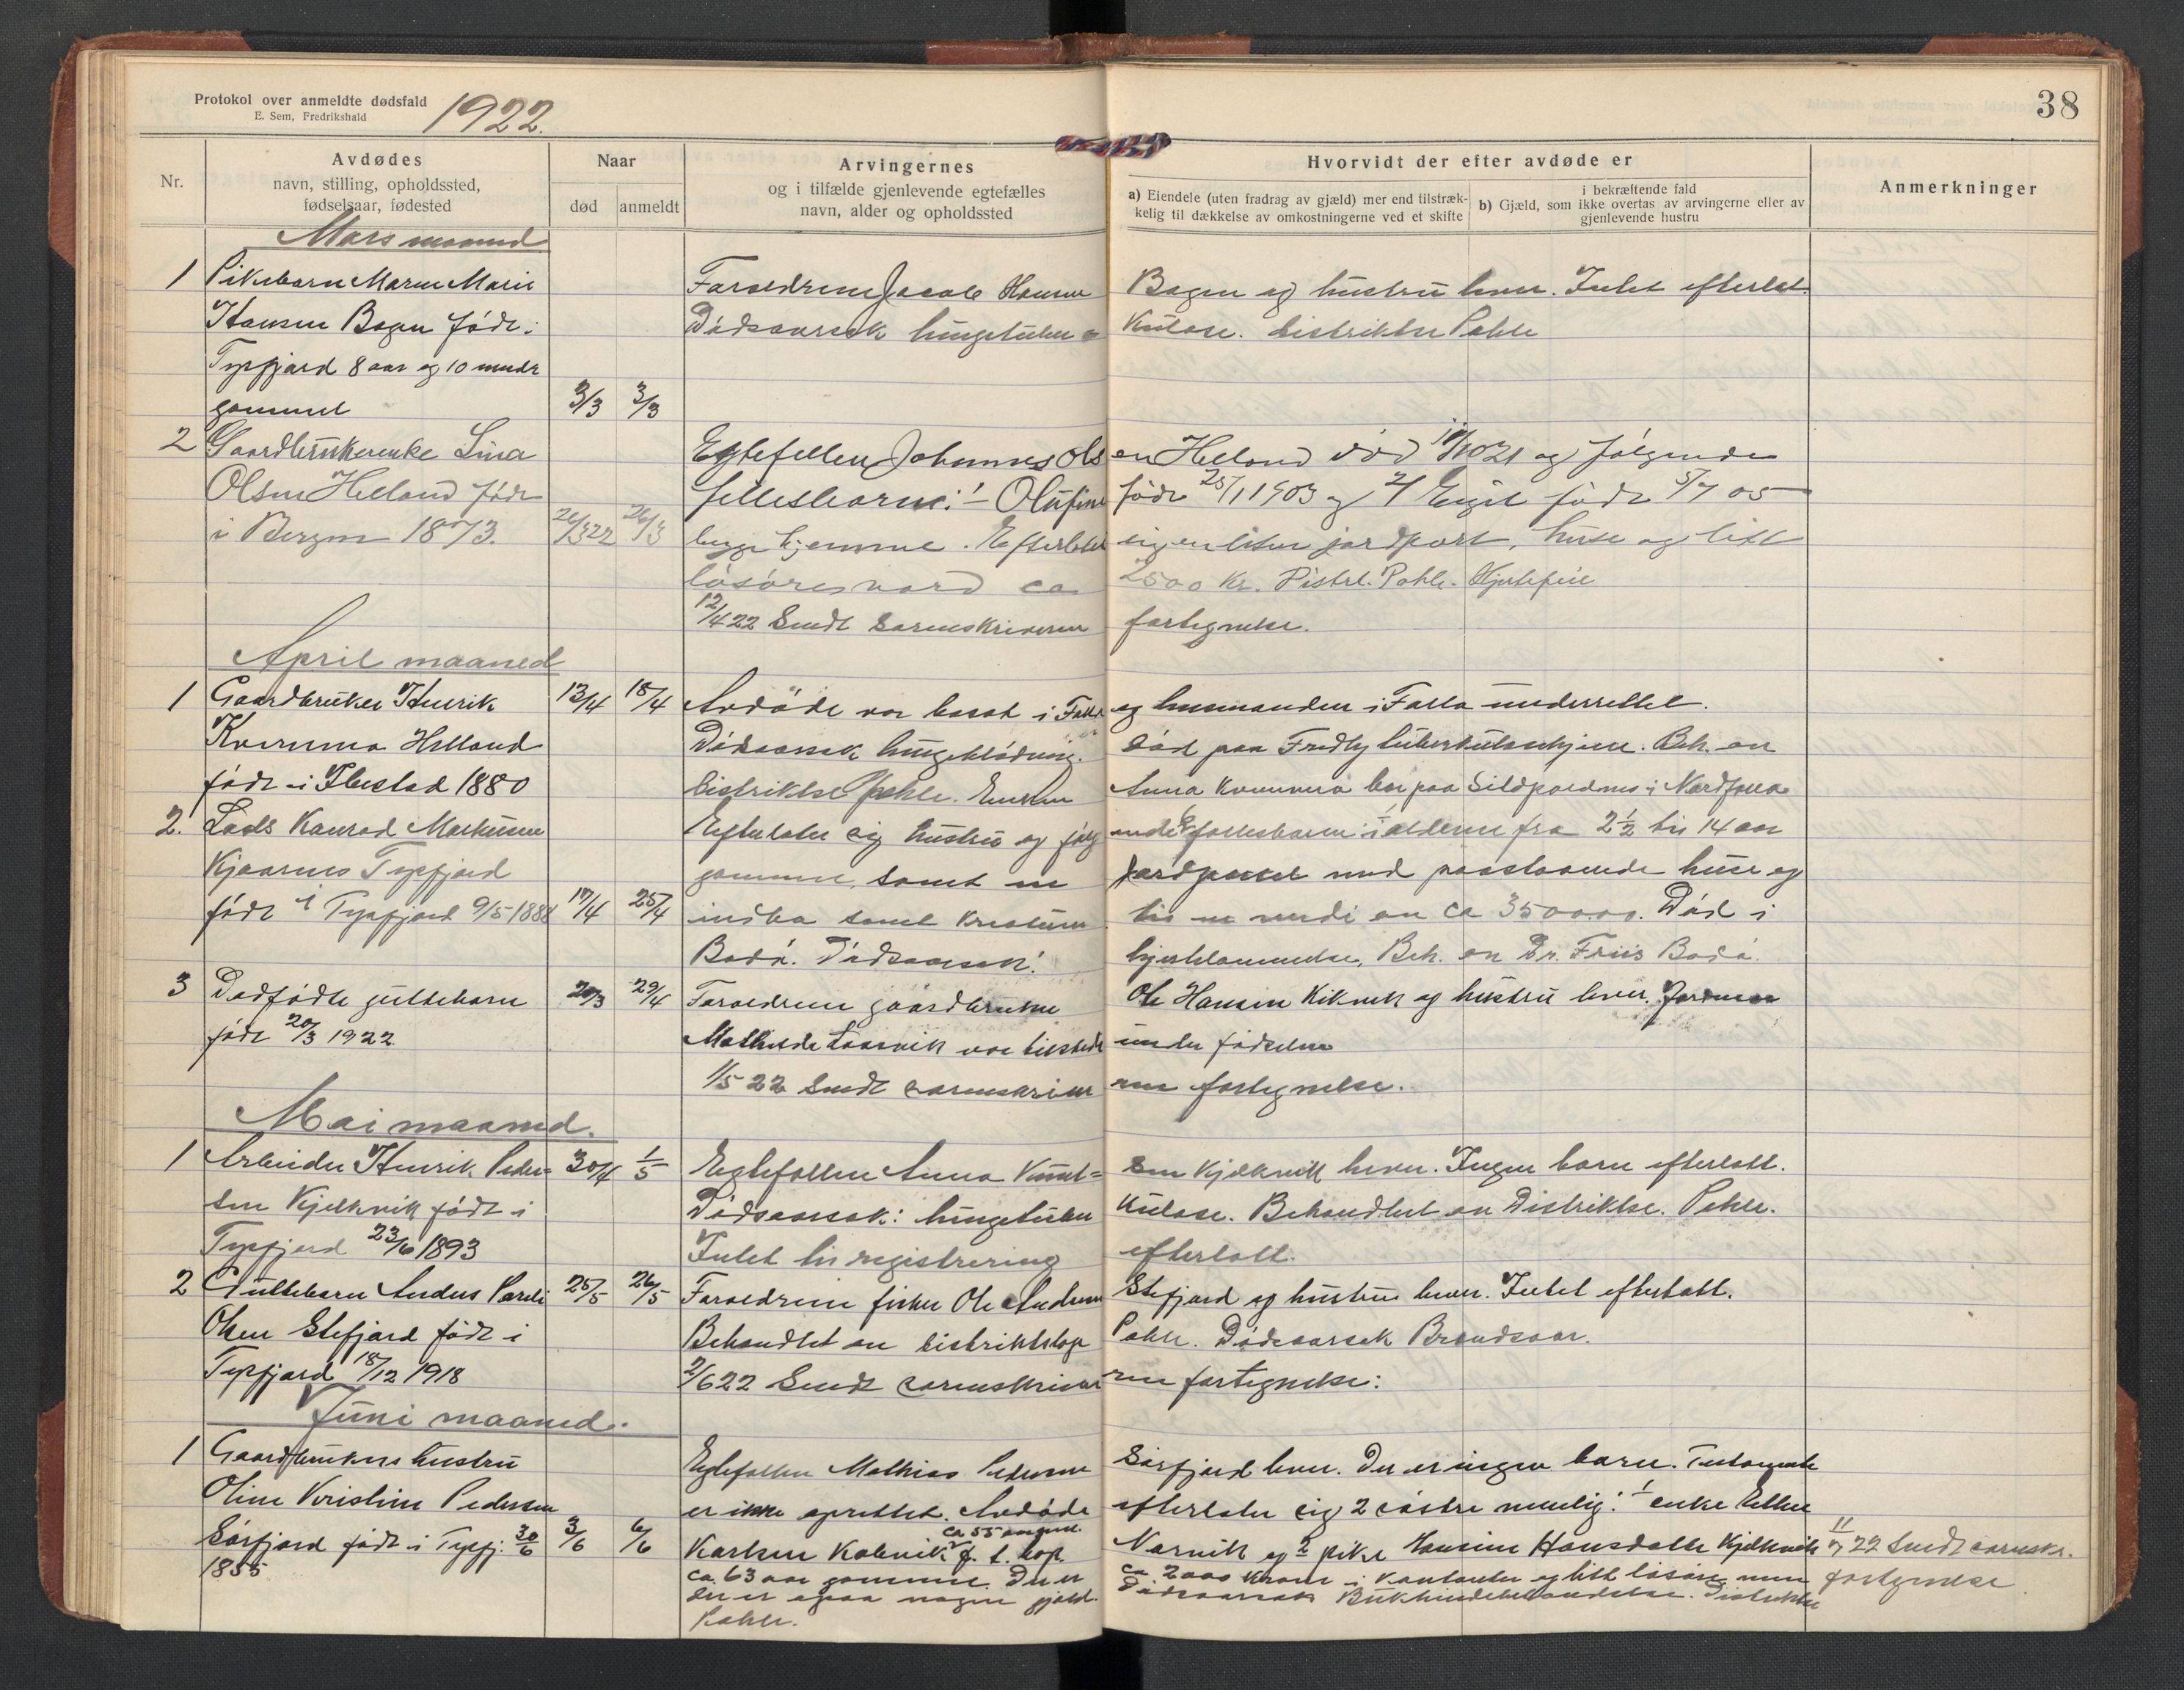 Protokol over anmeldte dødsfald
E. Sem, Fredrikshald
1922.
38
Nr.
Avdødes
navn, stilling, opholdssted,
fødselsaar, fødested
Naar
død
anmeldt
Arvingernes
og i tilfælde gjenlevende egtefælles
navn, alder og opholdssted
Hvorvidt der efter avdøde er
a) Eiendele (uten fradrag av gjæld) mer end tilstræk-
kelig til dækkelse av omkostningerne ved et skifte
i bekræftende fald
b) Gjæld, som ikke overtas av arvingerne eller av
gjenlevende hustru
Anmerkninger
Mars maaned
1 Pikebarn Maren Marie
Hansen Bogen født i
Tysfjord 8 aar og 10 mndr
gammel 3/3 3/3
Foreldrene Jacob Hansen Bogen og hustru lever. Intet efterlat.
Dødsaarsak lungetuber= kulose. Distriktsl Pahle
2 Gaardbrukerenke Lina
Olsen Helland født
i Bergen 1873. 26/3 22 26/3
Egtefellen Johannes Olsen Helland død 1921 og følgende
fellesbarn: 1 Olufine født 25/1 1903 og 2/ Engel født 5/7 05
begge hjemme. Efterlot sig en liten jordpart, huse og litt
løsøre, værd ca 2500 Kr. Distrl. Pahle. Hjertefeil
12/4 22 Sendt Sorenskriveren fortegnelse.
April maaned
1 Gaardbruker Henrik 13/4 18/4
Kvernmo Helland
født i Ibestad 1880
Avdøde var bosat i Folla og lensmanden i Folla underrettet.
Dødsaarsak lungeblødning. Død paa Fredly tuberkulosehjem. Beh. av
Distriktsl Pahle. Enken Anna Kvernmo bor paa Sildpordnes i Nordfolla
2. Lods Konrad Markusen
Kjaarnes Tysfjord
født i Tysfjord 9/5 1888 17/4 25/4
Efterlater sig hustru og følgende 6 fellesbarn i alderen fra 2 1/2 til 14 aar
gamme, samt en jordparsel med paastaaende huse og
indbo samt kreaturer til en verdi av ca 3500.00. Død i
Bodø. Dødsaarsak: hjertelammelse, Beh. av Dr. Friis Bodø.
3 Dødfødte guttebarn 20/3 29/4
født 20/3 1922
Foreldrene gaardbruker Ole Hansen Kikvik og hustru lever. Jormor
Mathilde Taarvik var tilstede under fødselen
1/5 22 Sendt sorenskriveren fortegnelse.
Mai maaned.
1 Arbeider Henrik Peder= 30/4 1/5
sen Kjelkvik født i
Tysfjord 23/6 1893
Egtefellen Anna Knut= sen Kjelkvik lever. Ingen barn efterlatt.
Dødsaarsak: lungetuber kulose. Behandlet av Distriktsl. Pahle.
Intet til registrering efterlatt.
2 Guttebarn Anders Pareli 25/5 26/5
Olsen Stefjord født i
Tysfjord 18/12 1918
Foreldrene fisker Ole Andersen Stefjord og hustru lever. Intet efterlatt.
Behandlet av distriktslæge Pahle. Dødsaarsak Brandsaar.
2/6 22 Sendt sorenskriveren fortegnelse:
Juni maaned.
1 Gaardbrukers hustru
Oline Kristine Pedersen
Sørfjord født i Tysfj. 30/6 3/6 6/6
1855
Egtefellen Mathias Pedersen Sørfjord lever. Der er ingen barn. Testamente
er ikke oprettet. Avdøde efterlater sig 2 søstre nemlig: 1 enke Ellen
Karlsen Kobvik ca 55 aar gml. Narvik og 2 pike Hansine Hansdatter Kjelkvik 11/7 22 Sendt sorenskr.
ca. 63 aar gammel. Der er ca 2000 kroner i kontanter og litt løsøre men fortegnelse
der er ogsaa nogen gjæld. Dødsaarsak Bukhindebetændelse. Distriktsl
Pahle.